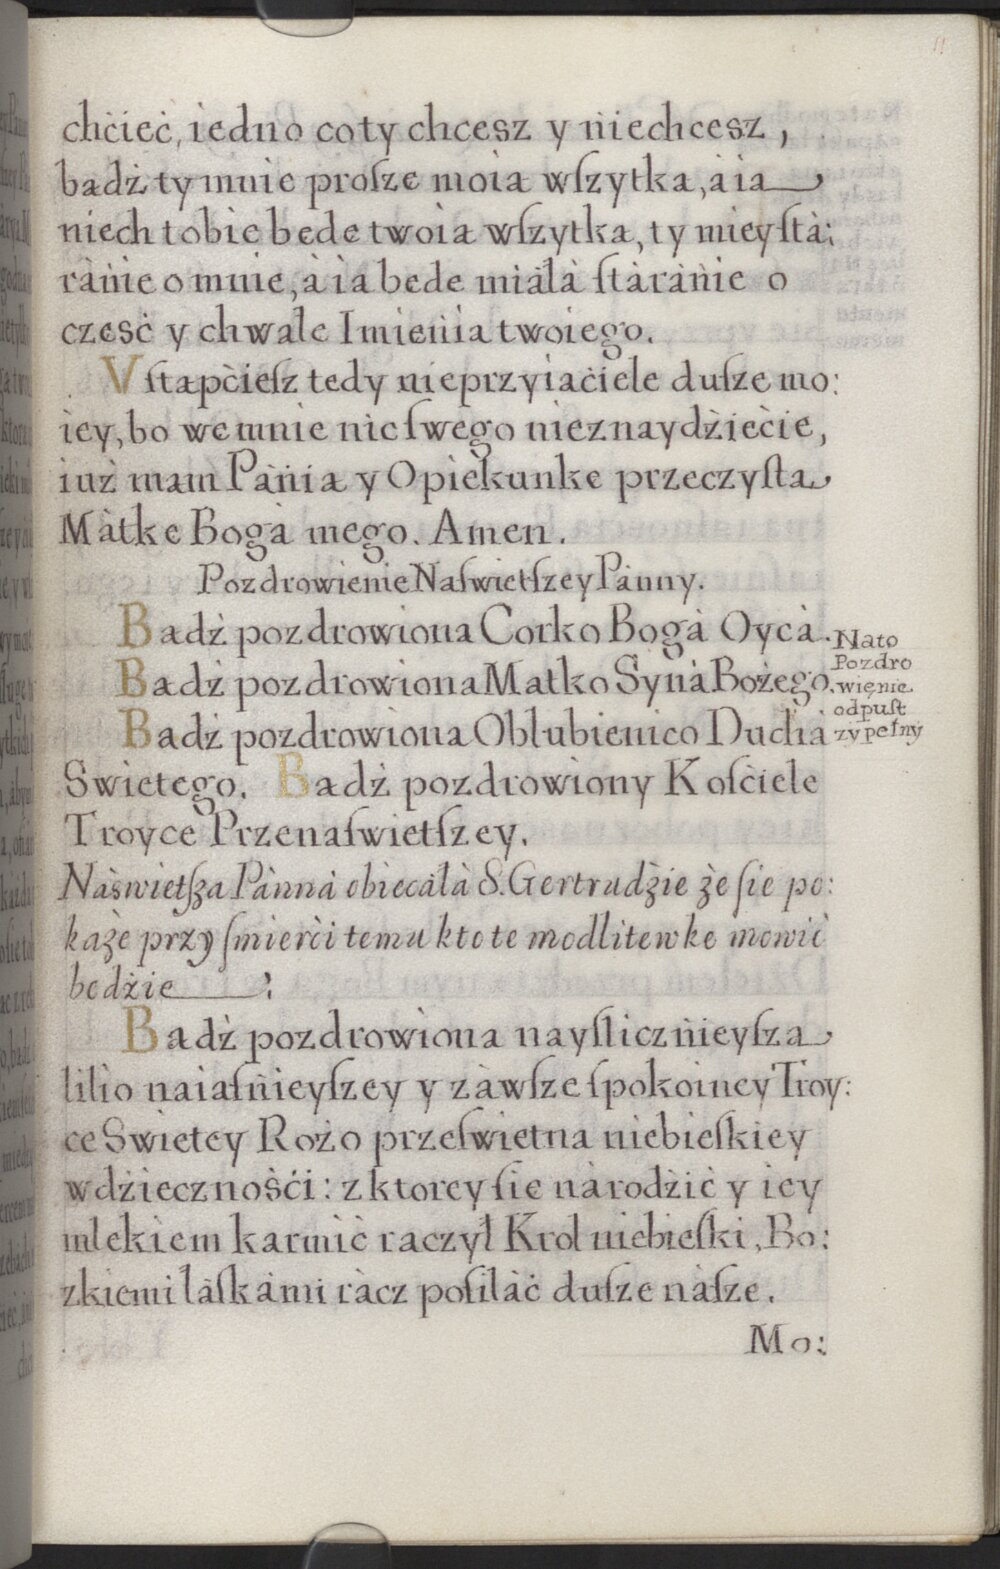 11
chćieć, iedno co ty chcesz y niechcesz,
badź ty mnie prosze moia wszytka, à ia
niech tobie bede twoia wszytka, ty miey stà:
rànie o mnie, à ia bede miałà stàrànie o
czesć y chwałe Imienia twoiego.
Vstapćiesz tedy nieprzyiaćiele dusze mo:
iey, bo we mnie nic swego nieznaydźiećie,
iuż mam Pània y Opiekunke przeczysta
Màtke Bogà mego. Amen.
Pozdrowienie Naswietszey Pànny.
Badź pozdrowiona Corko Bogà Oycà.
Badź pozdrowiona Matko Synà Bożego.
Badź pozdrowiona Oblubienico Duchà
Swietego. Badź pozdrowiony Kosćiele
Troyce Przenaswietszey.
Nato
Pozdro
więnie
odpust
zvpełny
Nàswietsza Pànnà obiecàłà S. Gertrudźie że sie po:
każe przy smierći temu kto te modlitewke mowić
bedźie :
Badź pozdrowiona nayslicznieysza
lilio naiasnieyszey y zàwsze spokoiney Troy:
ce Swietey Rożo przeswietna niebieskiey
wdźiecznośći: z ktorey sie nàrodźić y iey
mlekiem karmić raczył Krol niebieski, Bo:
zkiemi łàskàmi ràcz posilàć dusze nàsze.
Mo: